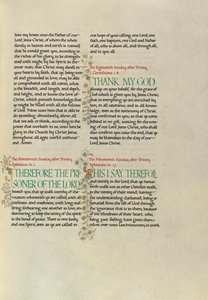 bow my knees unto the Father of our
Lord Jesus Christ, of whom the whole
family in heaven and earth is named,
that he would grant you, according to
the riches of his glory, to be strength-
ened with might by his Spirit in the
inner man; that Christ may dwell in
your hearts by faith; that ye, being root-
ed and grounded in love, may be able to
comprehend with all saints, what is
the breadth, and length, and depth,
and height; and to know the love of
Christ, which passeth knowledge, that
ye might be filled with all the fulness
of God. Now unto him that is able to
do exceeding abundantly above all
that we ask or think, according to the
power that worketh in us, unto him be
glory in the Church by Christ Jesus,
throughout all ages, world without
end. Amen.
The Seventeenth Sunday after Trinity
Ephesians iv. 1
THEREFORE THE PRI-
SONER OF THE LORD,
beseech you, that ye walk worthy of the
vocation wherewith ye are called, with all
lowliness and meekness, with long-suf-
fering, forbearing one another in love;
endeavouring to keep the unity of the spirit
in the bond of peace. There is one body,
and one Spirit, even as ye are called in
one hope of your calling; one Lord, one
faith, one baptism, one God and Father
of all, who is above all, and through all,
and in you all.
The Eighteenth Sunday after Trinity
1 Corinthians i. 4
THANK MY GOD
always on your behalf, for the grace of
God which is given you by Jesus Christ;
that in every thing ye are enriched by
him, in all utterance, and in all know-
ledge; even as the testimony of Christ
was confirmed in you; so that ye come
behind in no gift; waiting for the com-
ing of our Lord Jesus Christ, who shall
also confirm you unto the end, that ye
may be blameless in the day of our
Lord Jesus Christ.
The Nineteenth Sunday after Trinity
Ephesians iv. 17
THIS I SAY THEREFORE,
and testify in the Lord, that ye hence-
forth walk not as other Gentiles walk,
in the vanity of their mind, having
the understanding darkened, being a-
lienated from the life of God through
the ignorance that is in them, because
of the blindness of their heart; who,
being past feeling, have given them-
selves over unto lasciviousness, to work